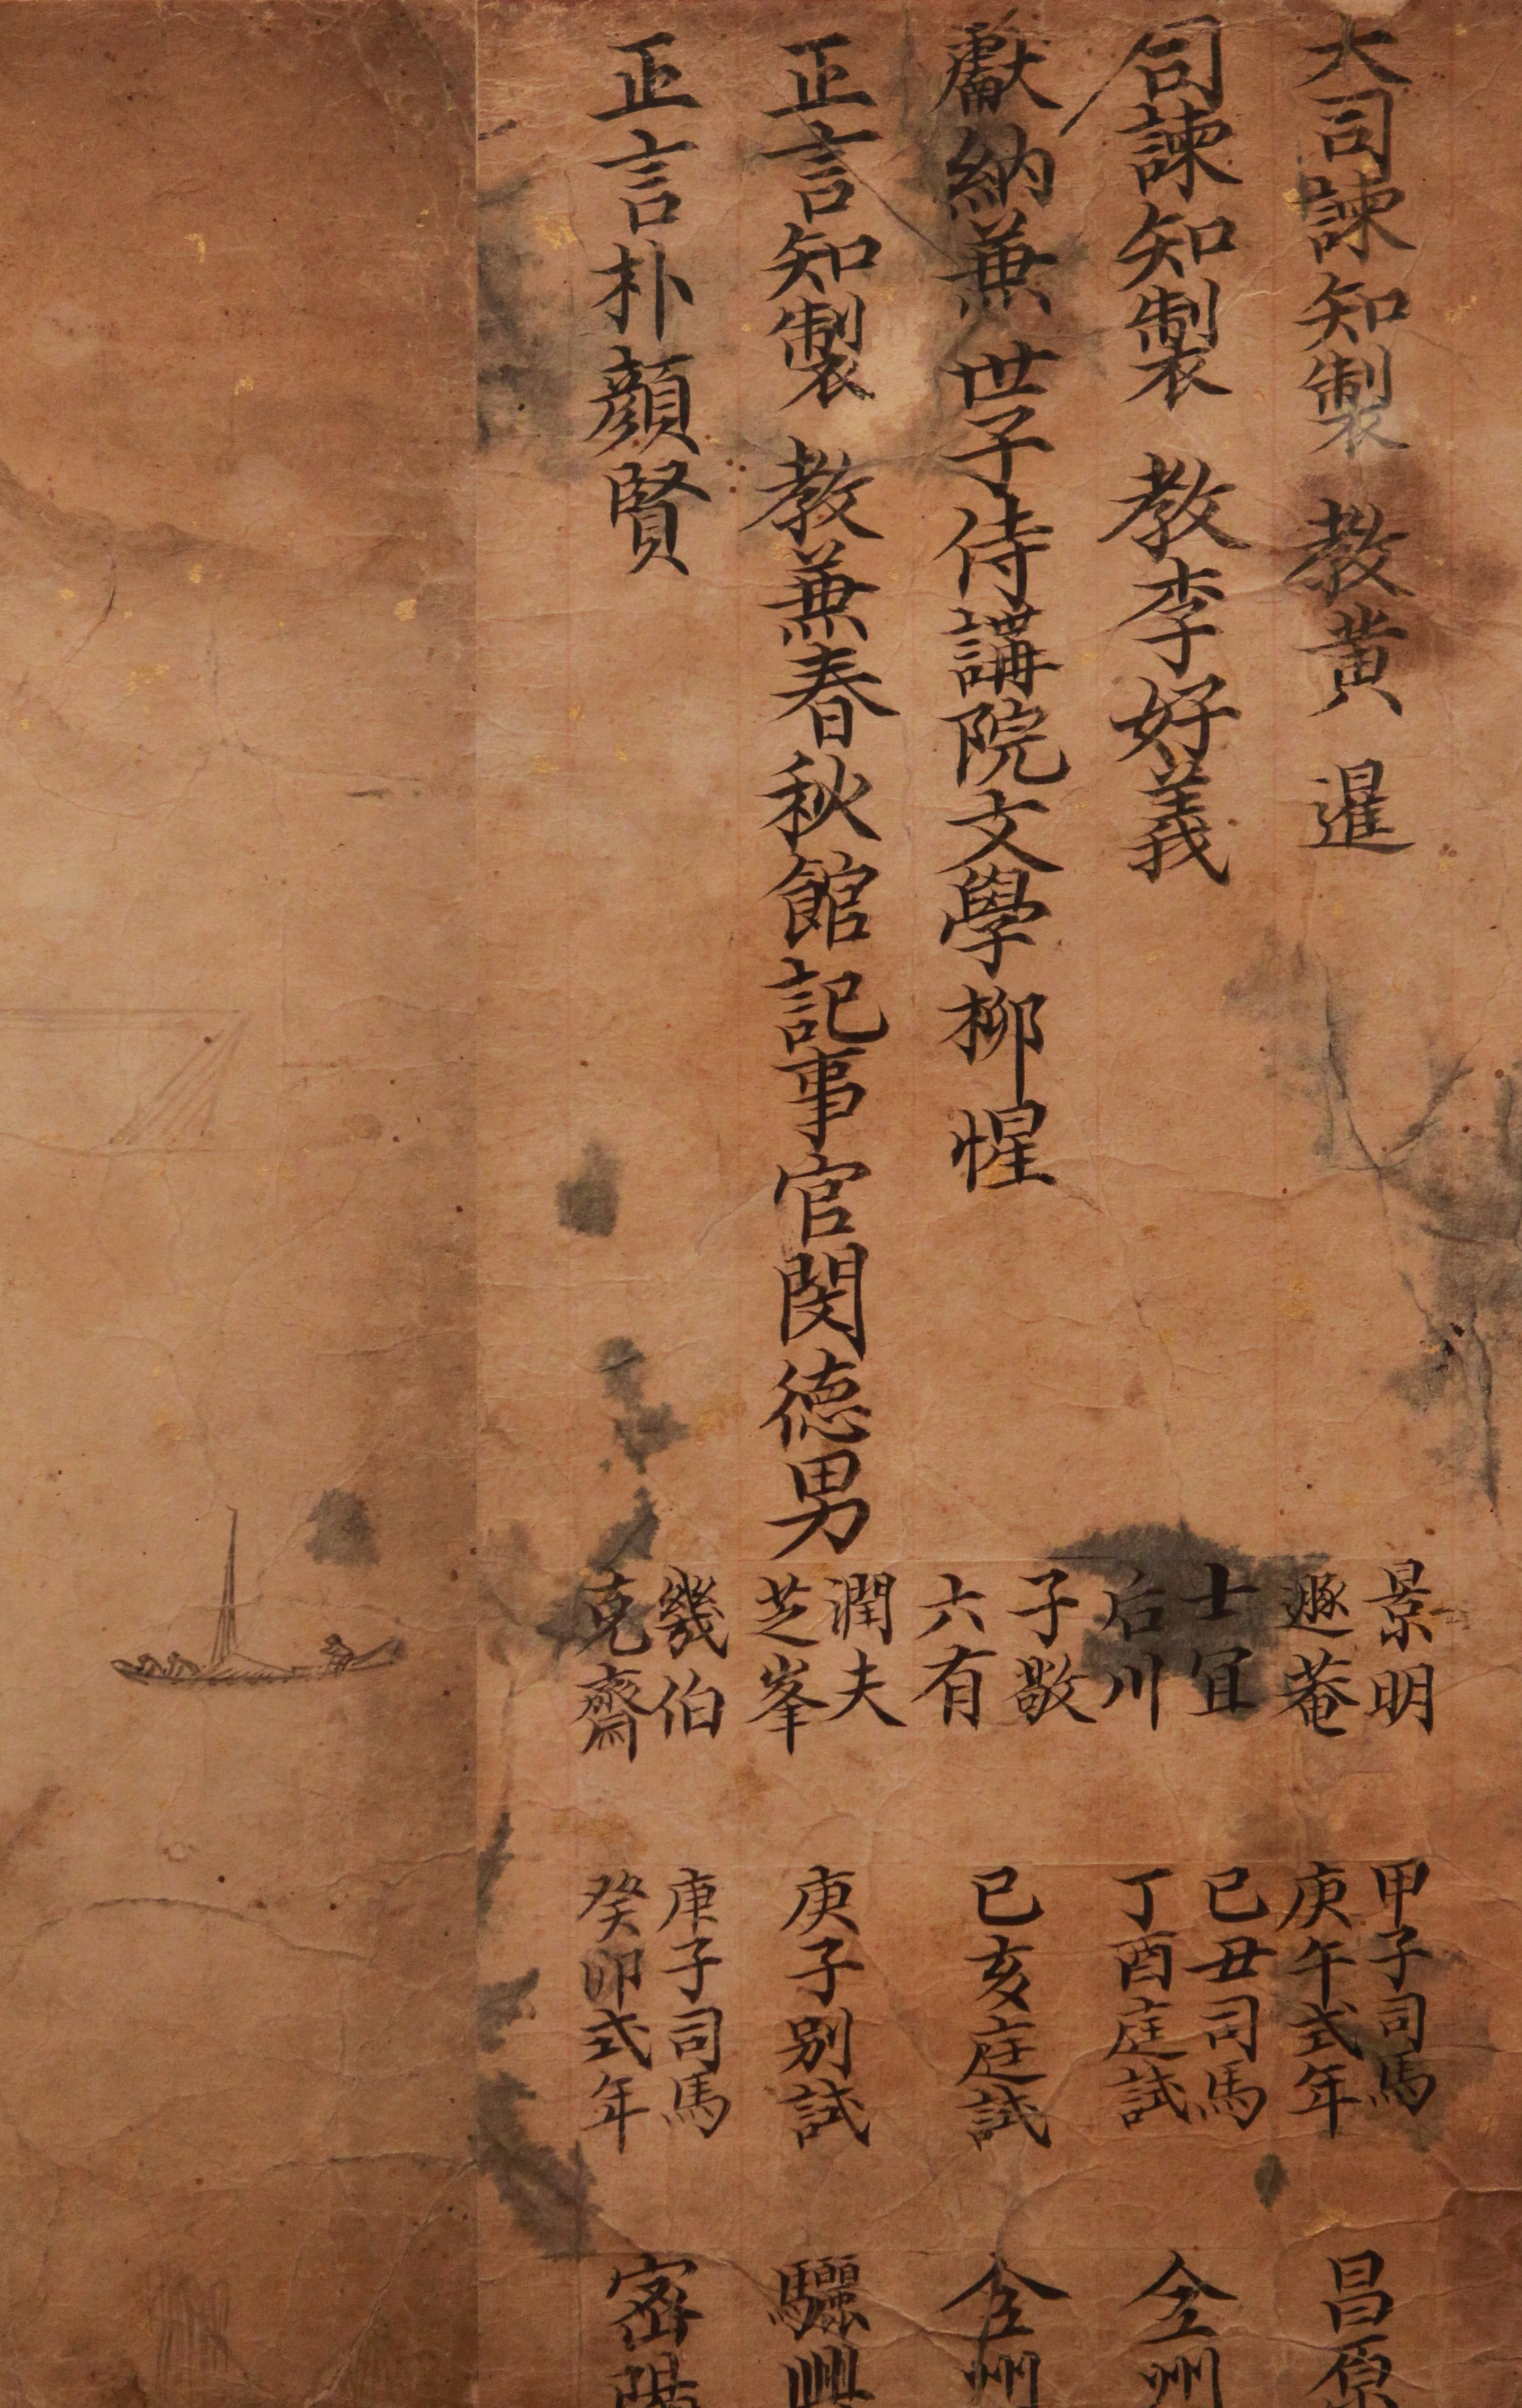 大司諫知製 教黃 暹
司諫知製 教李好義
獻納兼 世子侍講院文學柳惺
正言知製 教兼春秋館記事官閔德男
正言朴顔賢
景明
遯菴
士宜
后川
子敬
六有
潤夫
芝峯
幾伯
克齋
甲子司馬
庚午式年
己丑司馬
丁酉庭試
己亥庭試
庚子別試
庚子司馬
癸卯式年
昌原
全州
全州
驪興
密陽